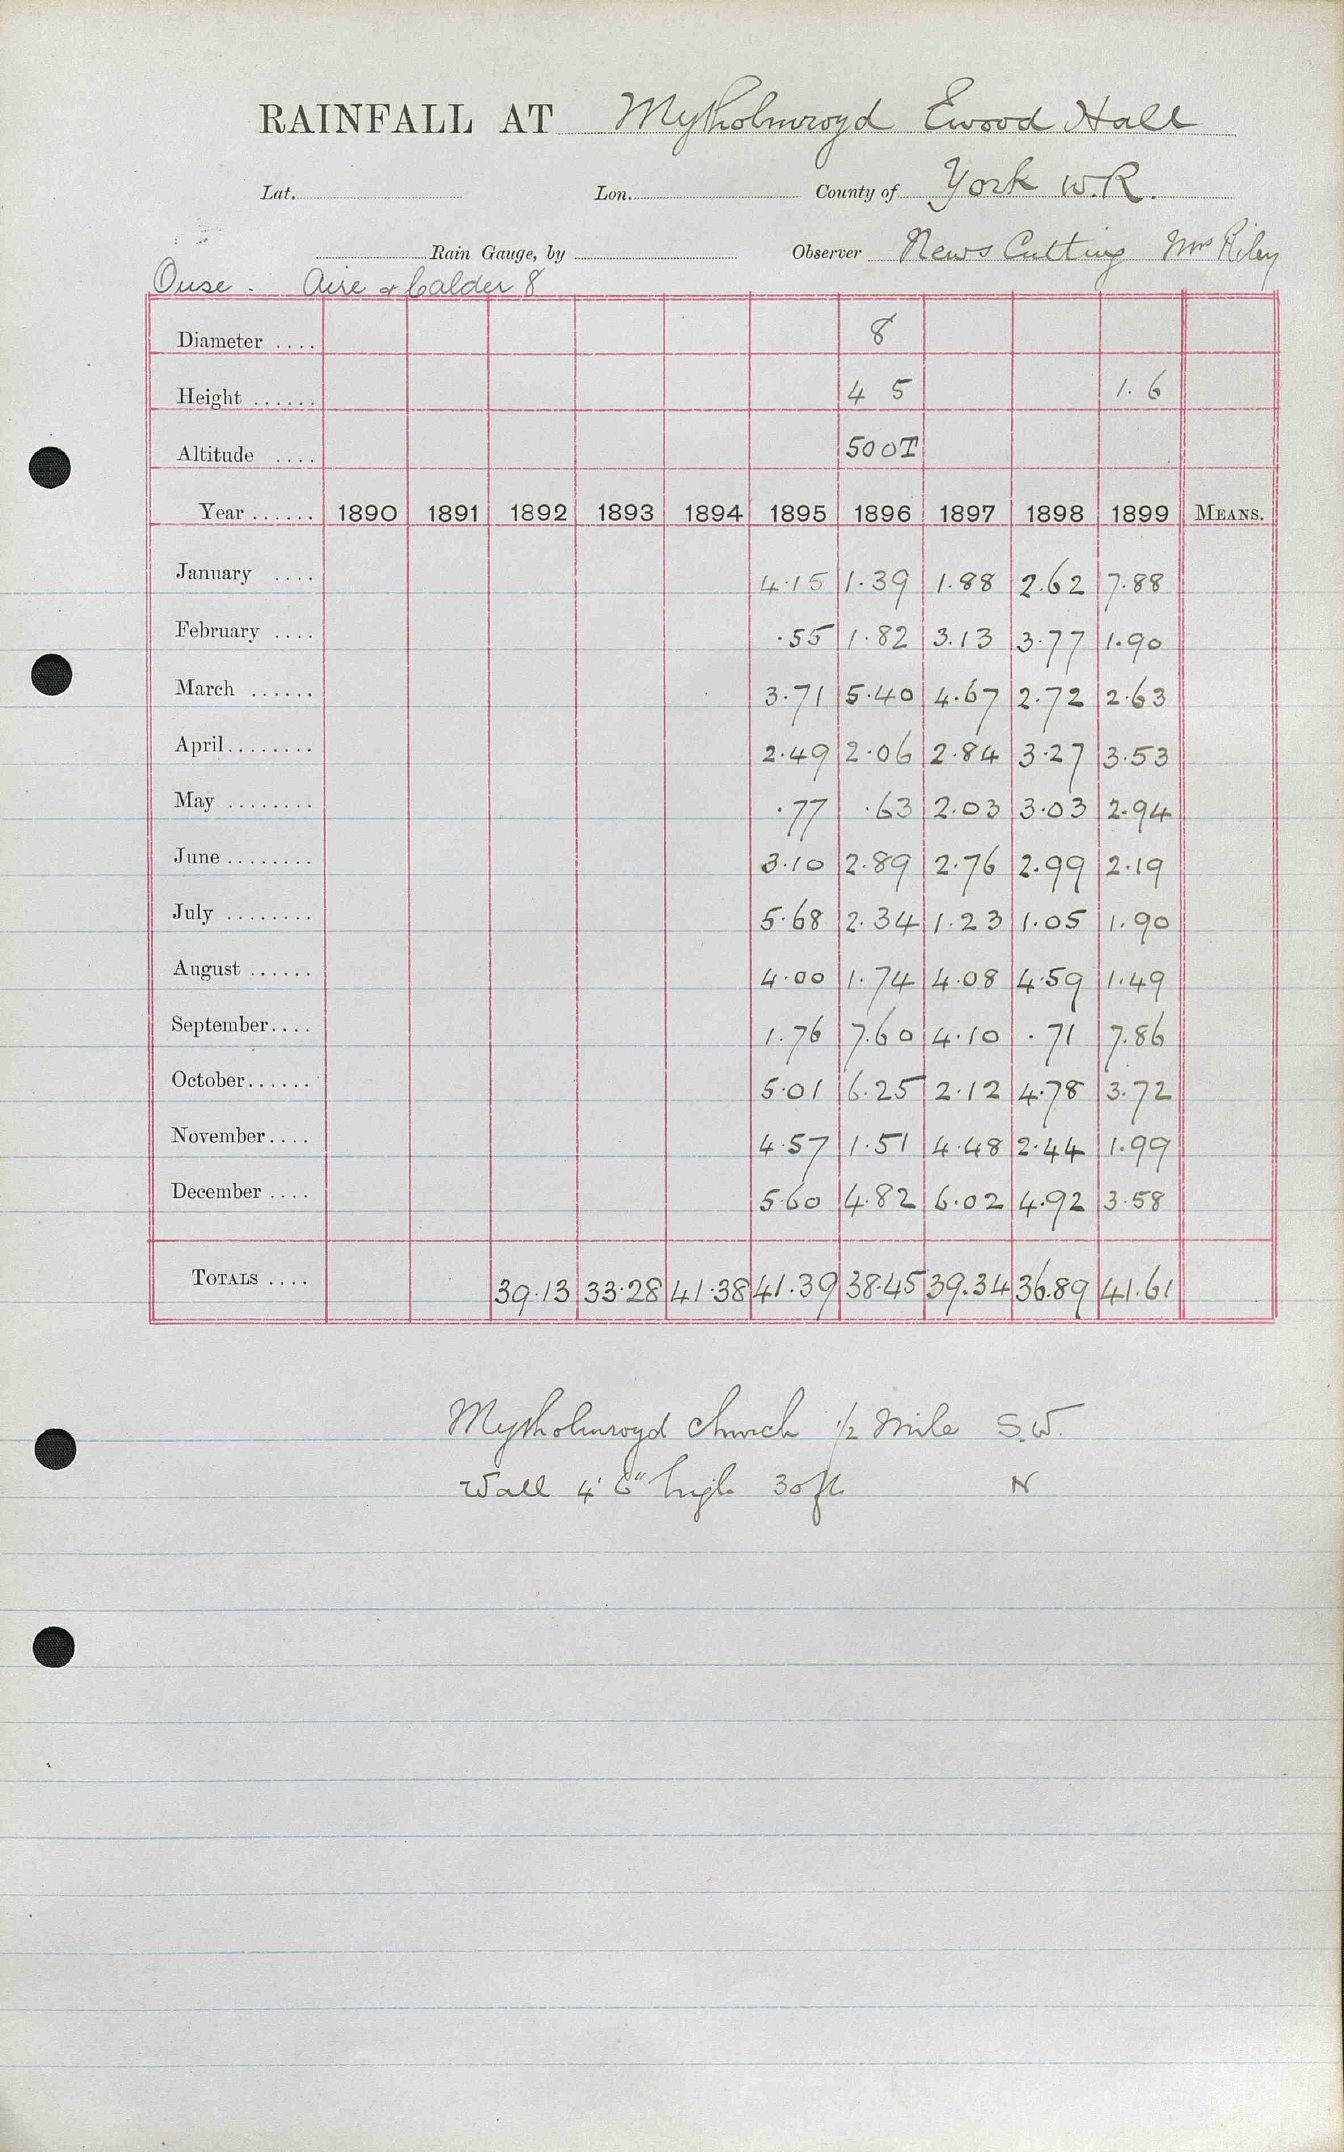 RAINFALL AT Mytholmroyd Ewood Hall
Lat. Lon. County of York W.R.
Rain Gauge, by Observer News Cutting Mrs Riley
Ouse. Aire & Calder 8
Diameter .... 8
Height ...... 4 5 1. 6
Altitude .... 500T
Year ...... 1890 1891 1892 1893 1894 1895 1896 1897 1898 1899 MEANS.
January .... 4.15 1.39 1.88 2.62 7.88
February .... .55 1.82 3.13 3.77 1.90
March ...... 3.71 5.40 4.67 2.72 2.63
April ........ 2.49 2.06 2.84 3.27 3.53
May ........ .77 .63 2.03 3.03 2.94
June ........ 3.10 2.89 2.76 2.99 2.19
July ........ 5.68 2.34 1.23 1.05 1.90
August ...... 4.00 1.74 4.08 4.59 1.49
September .... 1.76 7.60 4.10 .71 7.86
October ...... 5.01 6.25 2.12 4.78 3.72
November .... 4.57 1.51 4.48 2.44 1.99
December .... 5.60 4.82 6.02 4.92 3.58
TOTALS .... 39.13 33.28 41.38 41.39 38.45 39.34 36.89 41.61
Mytholmroyd Church ½ Mile S.W.
Wall 4' 6" high 30 ft N